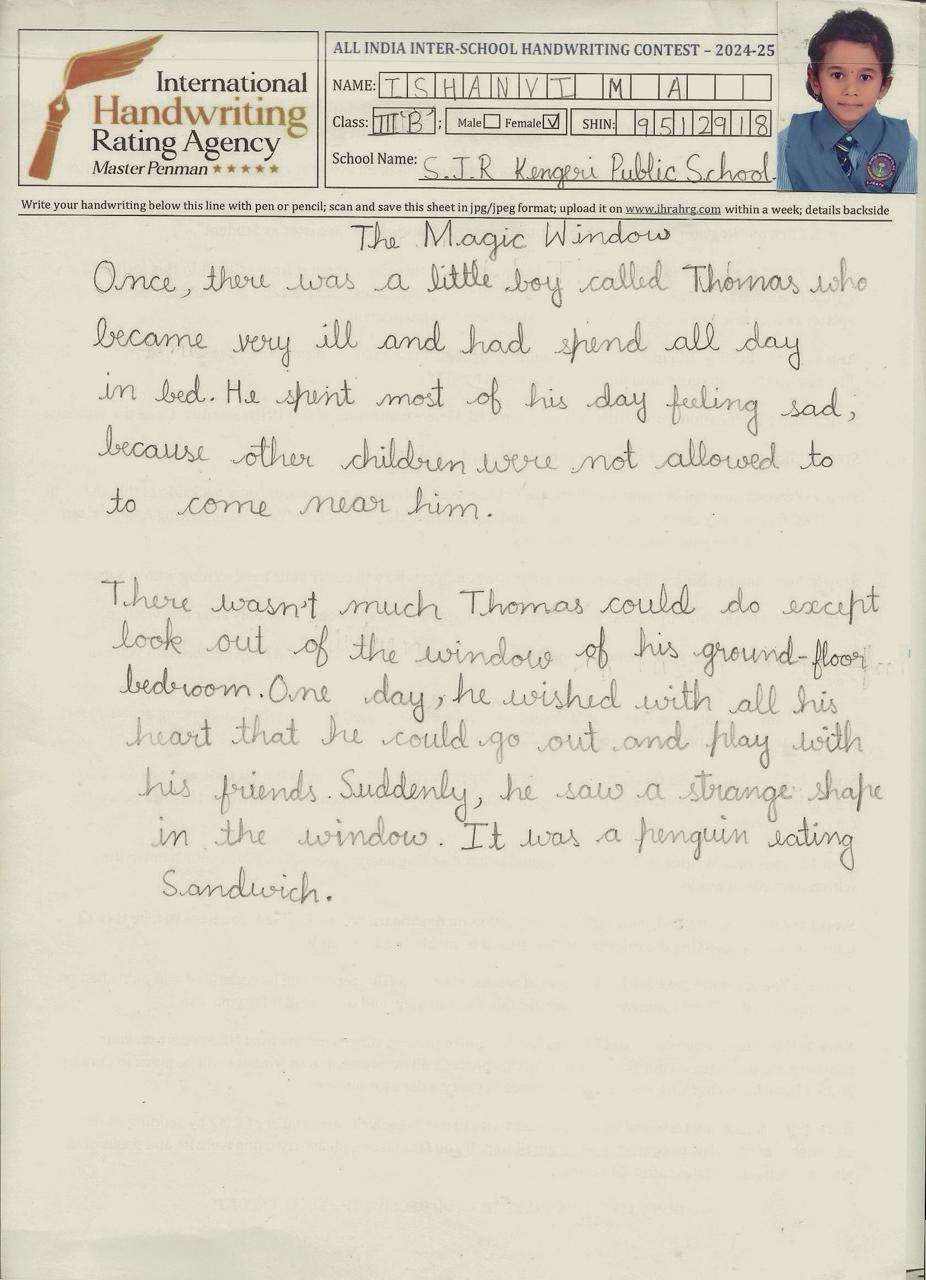 International
Handwriting
Rating Agency
Master Penman ★★★★★
ALL INDIA INTER-SCHOOL HANDWRITING CONTEST – 2024-25
NAME: ISHANVI M A
Class: III 'B' ; Male Female ☑ SHIN: 9512918
School Name: S.J.R Kengeri Public School.
Write your handwriting below this line with pen or pencil; scan and save this sheet in jpg/jpeg format; upload it on www.ihrahrg.com within a week; details backside
The Magic Window
Once, there was a little boy called Thomas who
became very ill and had spend all day
in bed. He spent most of his day feeling sad,
because other children were not allowed to
to come near him.
There wasn't much Thomas could do except
look out of the window of his ground-floor
bedroom. One day, he wished with all his
heart that he could go out and play with
his friends. Suddenly, he saw a strange shape
in the window. It was a penguin eating
Sandwich.